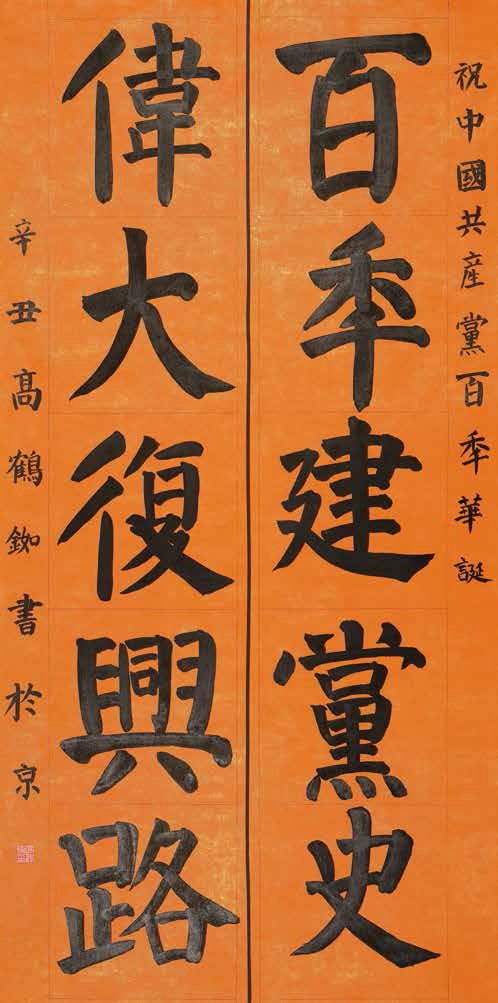 祝中國共産黨百年華誕
百年建黨史
偉大復興路
辛丑高鶴
書於京